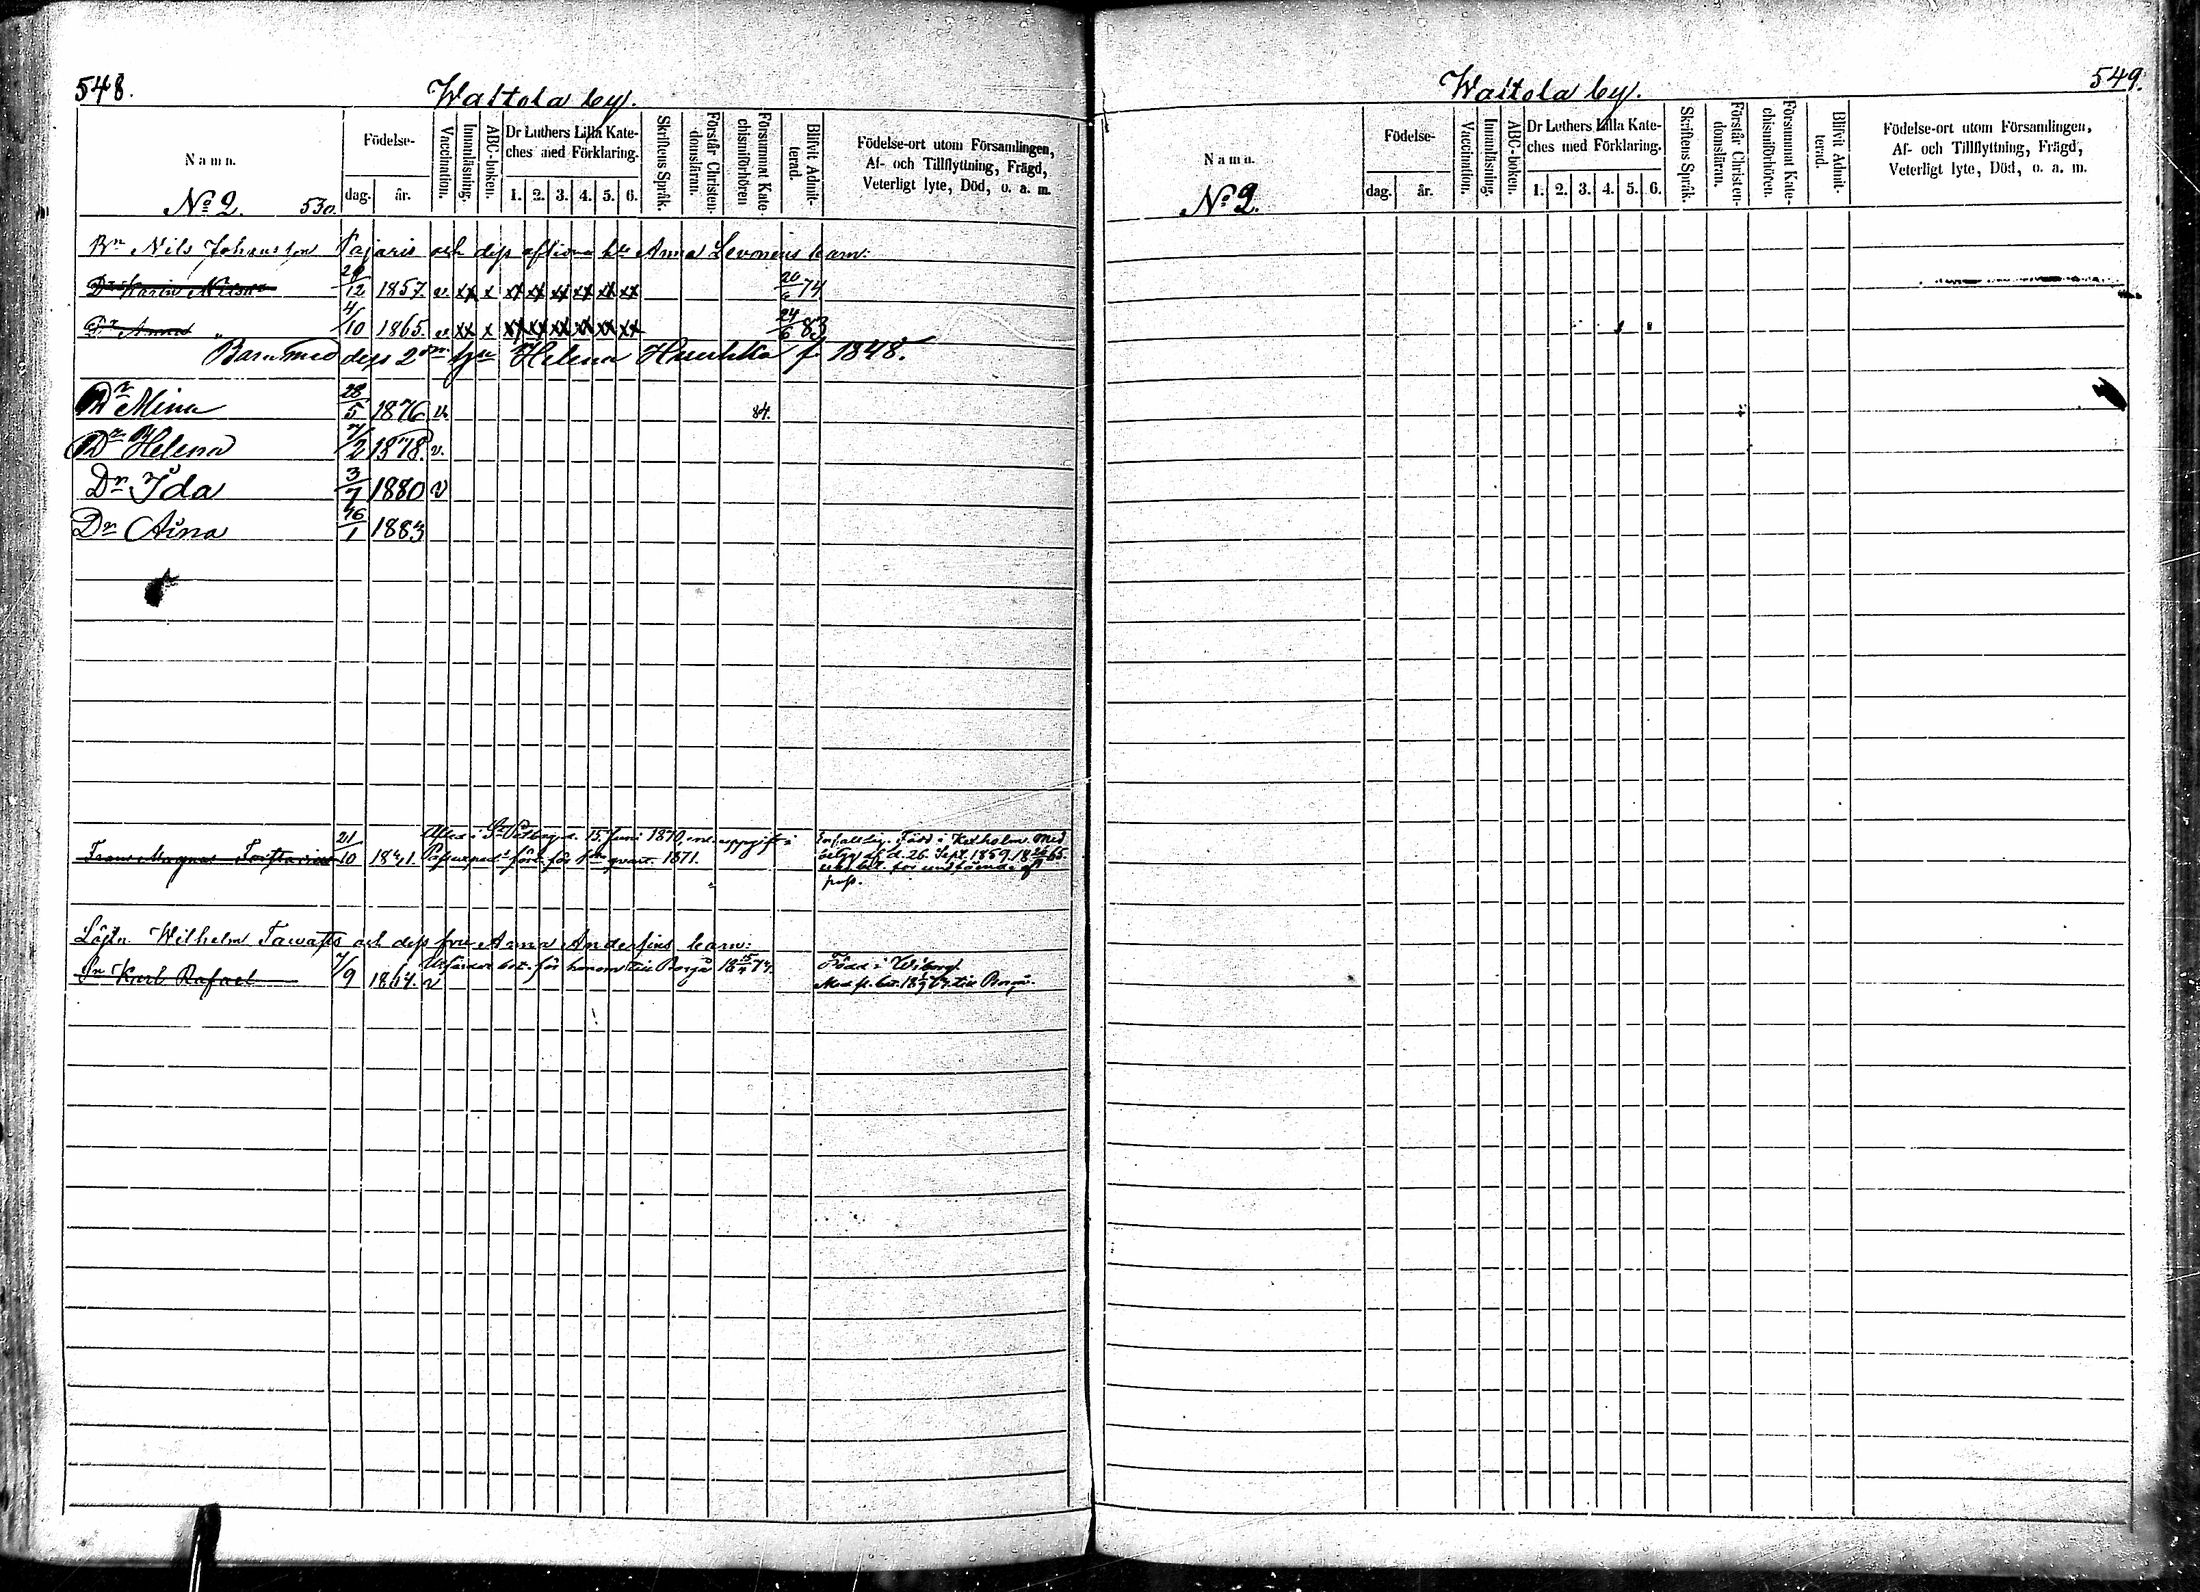 548.
Waltola by.
Namn.
Födelse-
dag.
år.
Vaccination.
Innanläsning.
ABC-boken.
Dr Luthers Lilla Kate-
ches med Förklaring.
1. 2. 3. 4. 5. 6.
Skriftens Språk.
Förstår Christen-
domsläran.
Försummat Kate-
chismiförhören
Blifvit Admit-
terad.
Födelse-ort utom Församlingen,
Af- och Tillflyttning, Frägd,
Veterligt lyte, Död, o. a. m.
No 2. 530.
Bn Nils Johansson Pajaris och dess aflidna hu Anna Levonens barn:
Dr Karin Nilsdr 29/12 1857. v. xx x xx xx xx xx xx xx 20/6 74
Dr Anna " 4/10 1865. v xx x xx xx xx xx xx xx 24/6 83
Barn med dess 2dra hu Helena f. 1848.
Dr Mina 28/5 1876 v. 84.
Dr Helena 7/2 1878. v.
Dr Ida 3/7 1880 v
Dr Aina 16/1 1883
Afled i St Petbg d. 15 Juni 1870, enl. uppgift i
Frans Magnus 21/10 1841. för qvart. 1871.
Enfaldig. Född i Kexholm. Med
betyg af d. 26 Sept. 1859.
pass.
Löjtn. Wilhelm Tawasts och dess fru Anna barn:
Sn Karl Rafael 7/9 1864. v bet. för honom till Borgå
Född i Wiborg.
Med fl. bet. till Borgå.
549.
Waltola by.
Namn.
Födelse-
dag.
år.
Vaccination.
Innanläsning.
ABC-boken.
Dr Luthers Lilla Kate-
ches med Förklaring.
1. 2. 3. 4. 5. 6.
Skriftens Språk.
Förstår Christen-
domsläran.
Försummat Kate-
chismiförhören.
Blifvit Admit-
terad.
Födelse-ort utom Församlingen,
Af- och Tillflyttning, Frägd,
Veterligt lyte, Död, o. a. m.
No 2.